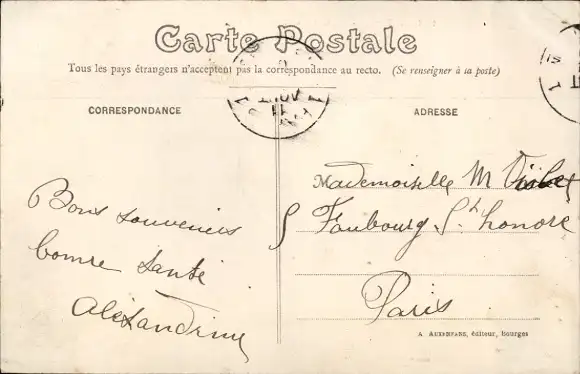 Carte Postale
Tous les pays étrangers n'acceptent pas la correspondance au recto. (Se renseigner à la poste)
CORRESPONDANCE
ADRESSE
Bons souvenirs
bonne santé
Alexandrine
Mademoiselle M
Faubourg St honoré
Paris
A AUXENFANS, éditeur, Bourges